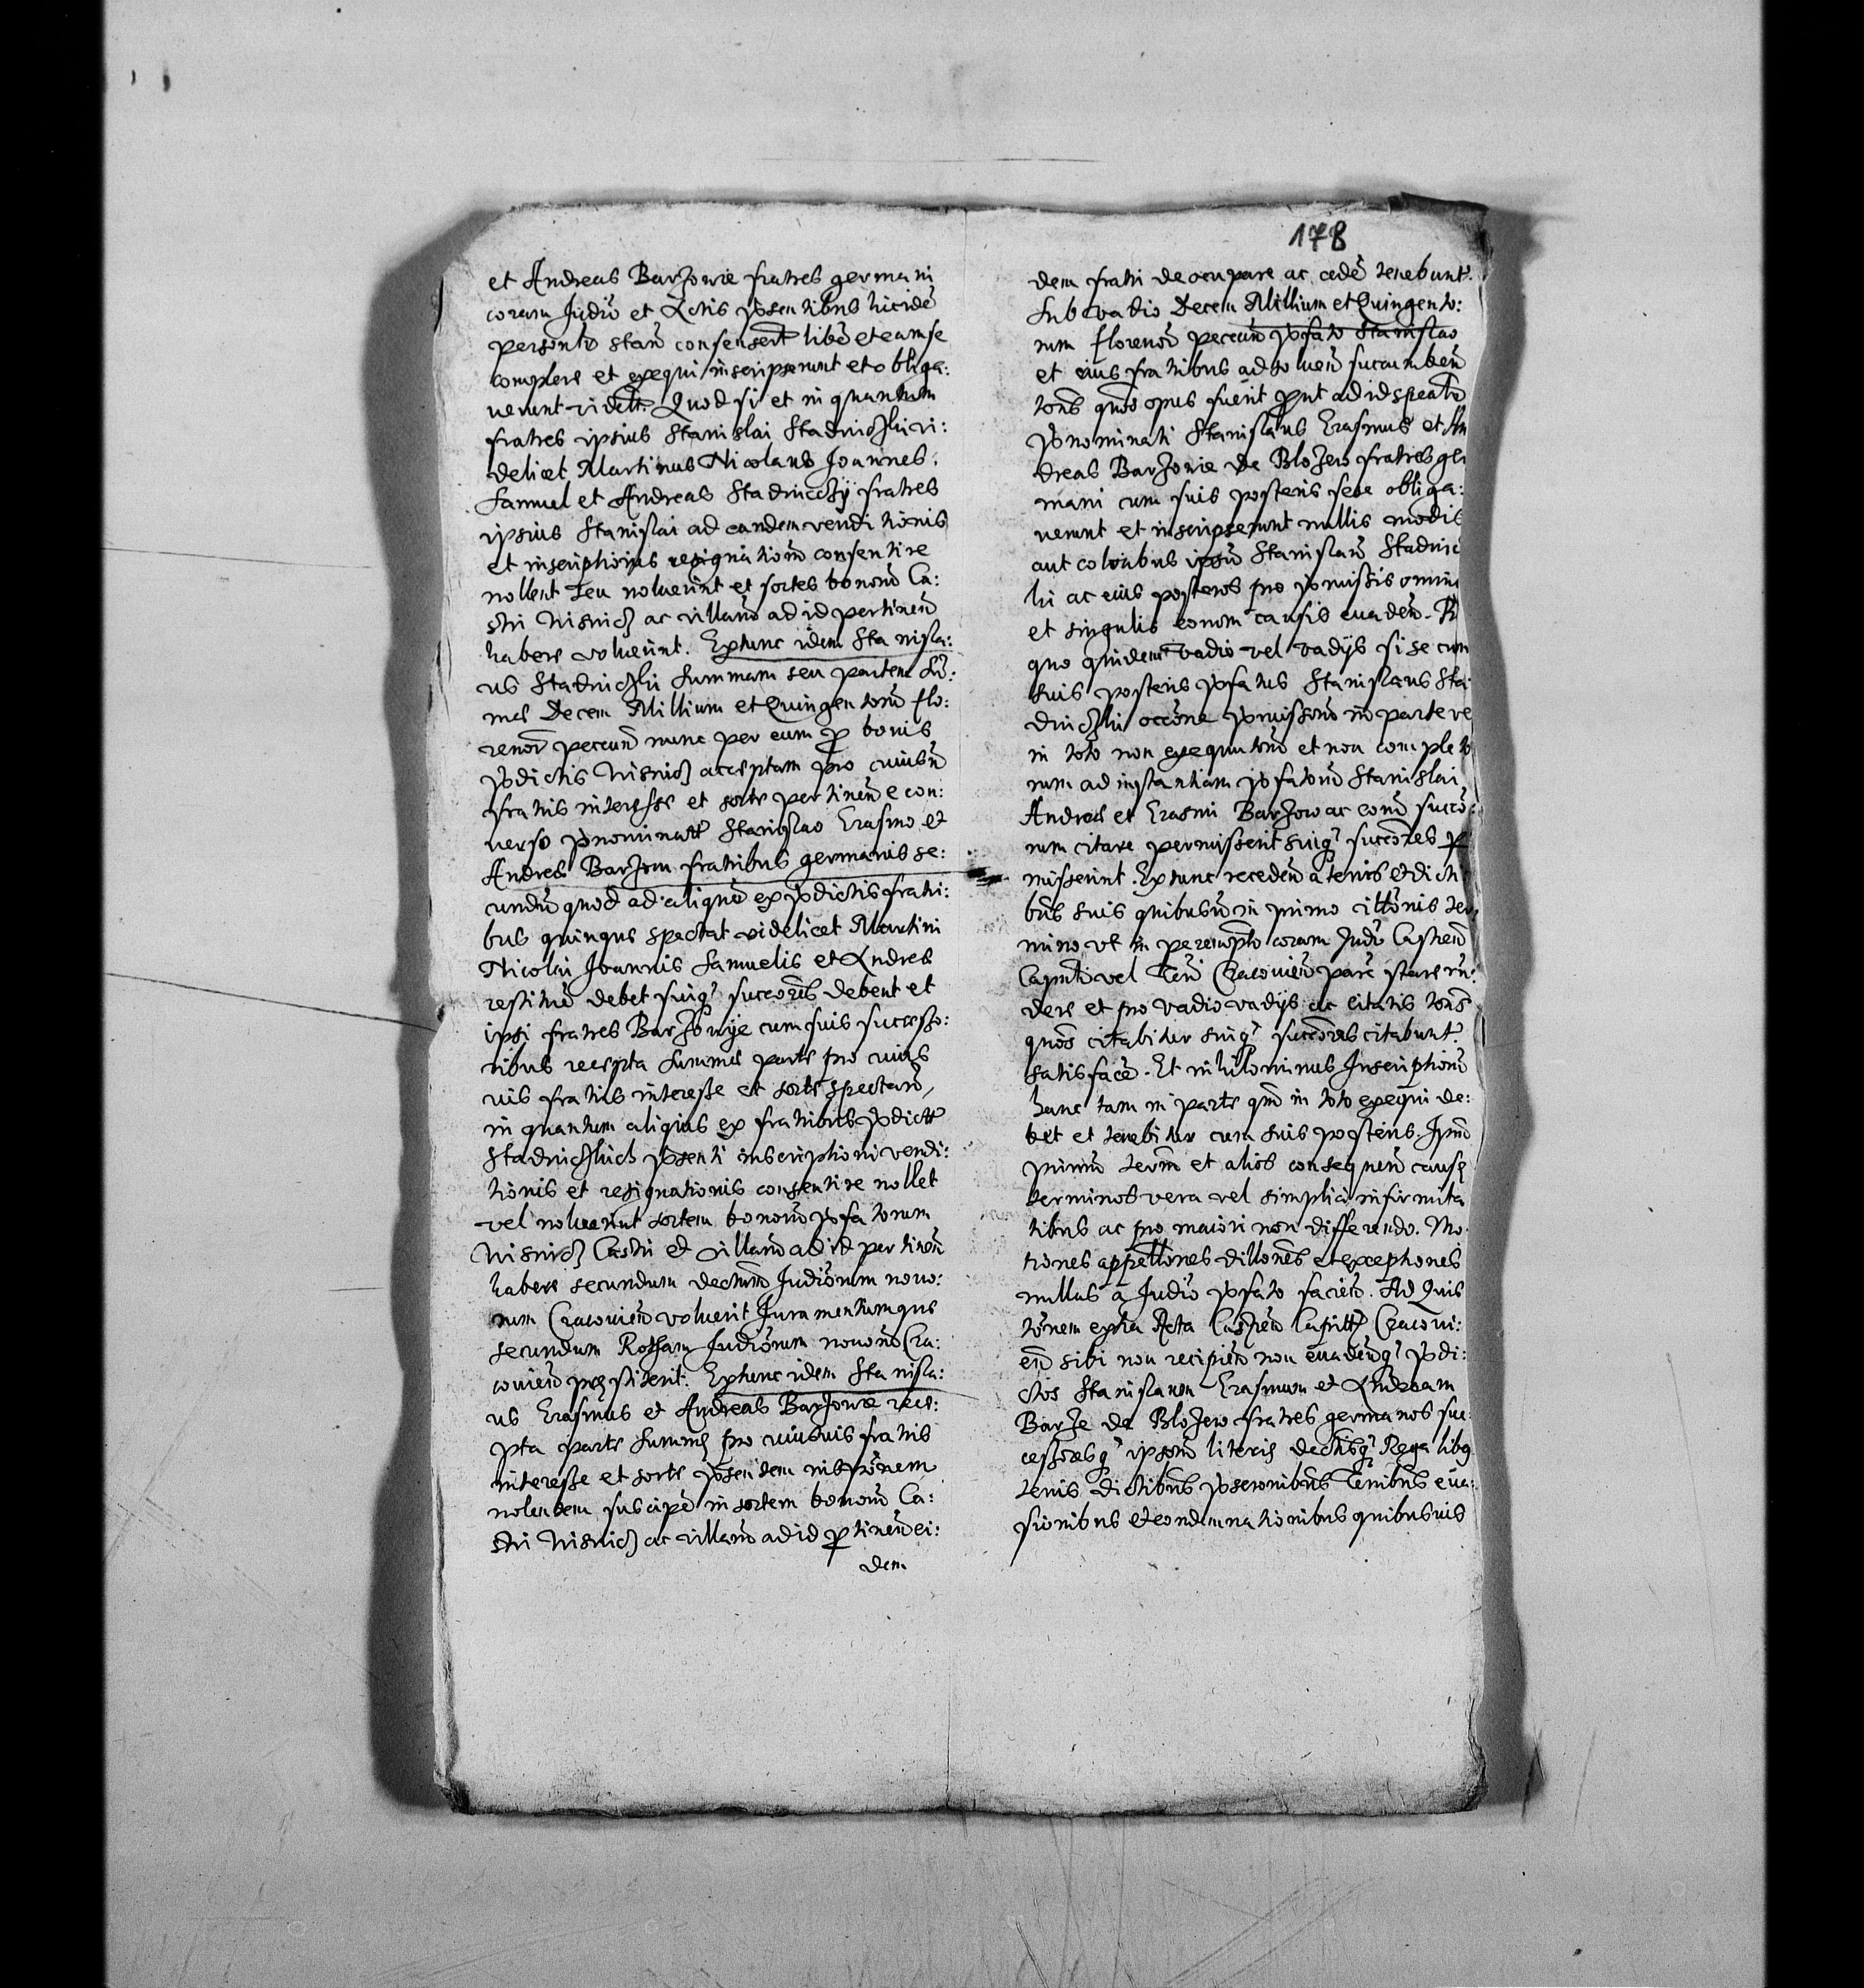 et Andreas Barzowie fratres germani
coram Judio et Actis pnsentibus hicidẽ
personlr stan consensert liberẽ et eam se
complere et exequi inscripserunt et obliga:
verunt videlt. Quod si et in quantum
fratres ipsius Stanislai Stadniczki vi:
delicet Martinus Nicolaus Joannes.
Samuel et Andreas Stadniczcy fratres
ipsius Stanislai ad eandem venditionis
et inscriptionis resignationem consentire
nollent seu noluerint et sortes bonorũ Ca:
stri Wisnicz ac villarũ ad id pertinen
habere voluerint. Extunc idem Stanisla:
us Stadniczki summam seu partem sũ:
mae Decem Millium et Quingentorũ flo:
renor pecceun nunc per eum p bonis
pdictis Wisnicz acceptam pro cuiusũ
fratris interesse et sorte pertinen e con:
verso pnominatt Stanislao Erasmo et
Andreae Barzom fratribus germanis se:
cundũ quod ad aliquẽ ex pdictis fratri:
bus quinque spectat videlicet Martini
Nicolai Joannis Samuelis et Andreae
restituẽ debet suiq. succores debent et
ipsi fratres Barzowye cum suis successo:
ribus recepta summae parte pro cuius
vis fratris interesse et sorte spectan,
in quantum aliquis ex fratribus pdictt
Stadniczkich pnsenti inscriptioni vendi:
tionis et resignationis consentire nollet
vel noluerint sortem bonorũ pfatorum
Wisnicz Castri et villarũ ad id pertinen
habere secundum decretum Judiorum novo:
rum Cracovien voluerit Juramentumque
secundum Rotham Judiorum novorũ Cra:
covien praestiterit. Extunc idem Stanisla:
us Erasmus et Andreas Barzowie rece:
pta parte summae pro cuiusvis fratris
interesse et sorte pnsentem inscrponem
nolentem suscipe in sortem bonorũ Ca:
stri Wisnicz ac villarũ ad id ptinen ei:
dem
178
dem fratri deocupare ac cedẽ tenebuntr.
Sub vadio Decem Millium et Quingento:
rum florenor pecceun pfato Stanislao
et eius fratribus ad solven sucumben
tors quos opus fuerit prout ad id speatr
pnominati Stanislaus Erasmus et An
dreas Barzowie de Blozew fratres ger
mani cum suis posteris sese obliga:
verunt et inscripserunt nullis modis
aut coloribus ipsũ Stanislaũ Stadnic
ki ac eius posteros pro pmissis omni
et singulis eorum causis evaden.
quo quidem vadio vel vadys si se cum
suis posteris pfatus Stanislaus Sta
dniczki occone pmissorũ in parte ve
in toto non exequutorũ et non completo
rum ad instantiam pfatorũ Stanislai
Andreae et Erasmi Barzow ac eorũ succo
rum citare permisserit suiq. succores p
misserint. Extunc receden a terris et dicti
bus suis quibusvi in primo cittonis ter
mino ut in perempto coram Judio Castren
Capnti vel Tern Cracovien pare stare rn:
dere et pro vadio vadys ac citatis tons
quos citabitur suiq. succores citabunt.
satisfacẽ. Et nihilominus Inscriptionũ
hanc tam in parte qm in toto exequi de:
bet et tenebitur cum suis posteris. Ipmũ
primũ termĩ et alios consequen causę
terminos vera vel simplici infirmita
tibus ac pro maiori non differendo. Mo
tiones appellones dillones et exceptiones
nullas a Judio pfato facien. Ad Quie
tonem extra Acta Castren Capitt Cracovi:
en sibi non recipien non evadenq. pdi:
ctos Stanislaum Erasmum et Andream
Barze de Blozew fratres germanos suc
cessoresq. ipsorũ literis dectisq. Regalibq
terris dictibus pscronibus Terribus eva:
sionibus et condemnationibus quibusvis